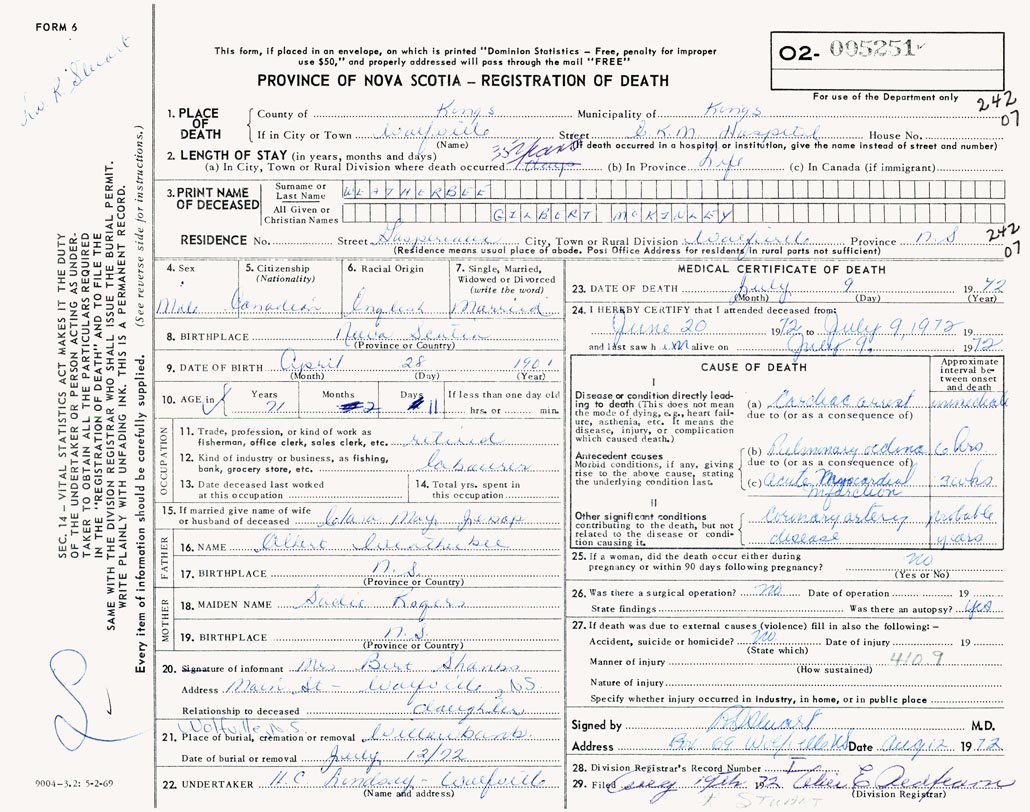 FORM 6
This form, if placed in an envelope, on which is printed "Dominion Statistics – Free, penalty for improper
use $50," and properly addressed will pass through the mail "FREE"
PROVINCE OF NOVA SCOTIA – REGISTRATION OF DEATH
02- 005251
For use of the Department only
242
07
1. PLACE OF DEATH
County of Kings Municipality of Kings
If in City or Town Wolfville Street E K M Hospital House No.
(Name) (If death occurred in a hospital or institution, give the name instead of street and number)
2. LENGTH OF STAY (in years, months and days)
(a) In City, Town or Rural Division where death occurred 35 years (b) In Province Life (c) In Canada (if immigrant)
3. PRINT NAME OF DECEASED
Surname or Last Name WEATHERBEE
All Given or Christian Names GILBERT McKINLEY
RESIDENCE No. Street Gaspereau City, Town or Rural Division Wolfville Province N.S
(Residence means usual place of abode. Post Office Address for residents in rural parts not sufficient)
242
07
4. Sex
Male
5. Citizenship (Nationality)
Canadian
6. Racial Origin
English
7. Single, Married, Widowed or Divorced (write the word)
Married
8. BIRTHPLACE Nova Scotia
(Province or Country)
9. DATE OF BIRTH April 28 1901
(Month) (Day) (Year)
10. AGE in Years 71 Months 2 Days 11 If less than one day old hrs. or min.
OCCUPATION
11. Trade, profession, or kind of work as fisherman, office clerk, sales clerk, etc. retired
12. Kind of industry or business, as fishing, bank, grocery store, etc. labourer
13. Date deceased last worked at this occupation
14. Total yrs. spent in this occupation
15. If married give name of wife or husband of deceased Clara May
FATHER
16. NAME Albert Weatherbee
17. BIRTHPLACE N.S.
(Province or Country)
MOTHER
18. MAIDEN NAME Sadie Rogers
19. BIRTHPLACE N.S
(Province or Country)
20. Signature of informant Mrs Bert Shanks
Address Main St – Wolfville, N.S.
Relationship to deceased daughter
Wolfville, N.S.
21. Place of burial, cremation or removal Willowbank
Date of burial or removal July 12/72
22. UNDERTAKER H.C. Lindsay – Wolfville
(Name and address)
MEDICAL CERTIFICATE OF DEATH
23. DATE OF DEATH July 9 1972
(Month) (Day) (Year)
24. I HEREBY CERTIFY that I attended deceased from:
June 20 1972 to July 9, 1972
and last saw him alive on July 9. 1972
CAUSE OF DEATH
Approximate interval between onset and death
I
Disease or condition directly leading to death (This does not mean the mode of dying, e.g., heart failure, asthenia, etc. It means the disease, injury, or complication which caused death.)
(a) Cardiac arrest immediate
due to (or as a consequence of)
Antecedent causes
Morbid conditions, if any, giving rise to the above cause, stating the underlying condition last.
(b) Pulmonary oedema 6 hrs
due to (or as a consequence of)
(c) Acute Myocardial infarction
II
Other significant conditions contributing to the death, but not related to the disease or condition causing it.
coronary artery disease probable years
25. If a woman, did the death occur either during
pregnancy or within 90 days following pregnancy? no
(Yes or No)
26. Was there a surgical operation? no Date of operation 19
State findings Was there an autopsy? yes
27. If death was due to external causes (violence) fill in also the following: –
Accident, suicide or homicide? No Date of injury 19
(State which)
Manner of injury 410.9
(How sustained)
Nature of injury
Specify whether injury occurred in industry, in home, or in public place
Signed by M.D.
Address Box 69 Wolfville NS Date Aug 12 1972
28. Division Registrar's Record Number
29. Filed Aug 19
(Division Registrar)
SEC. 14 – VITAL STATISTICS ACT MAKES IT THE DUTY
OF THE UNDERTAKER OR PERSON ACTING AS UNDER-
TAKER TO OBTAIN ALL THE PARTICULARS REQUIRED
IN THE "REGISTRATION OF DEATH" AND TO FILE THE
SAME WITH THE DIVISION REGISTRAR WHO SHALL ISSUE THE BURIAL PERMIT.
WRITE PLAINLY WITH UNFADING INK. THIS IS A PERMANENT RECORD.
Every item of information should be carefully supplied. (See reverse side for instructions.)
9004-3.2: 5-2-69